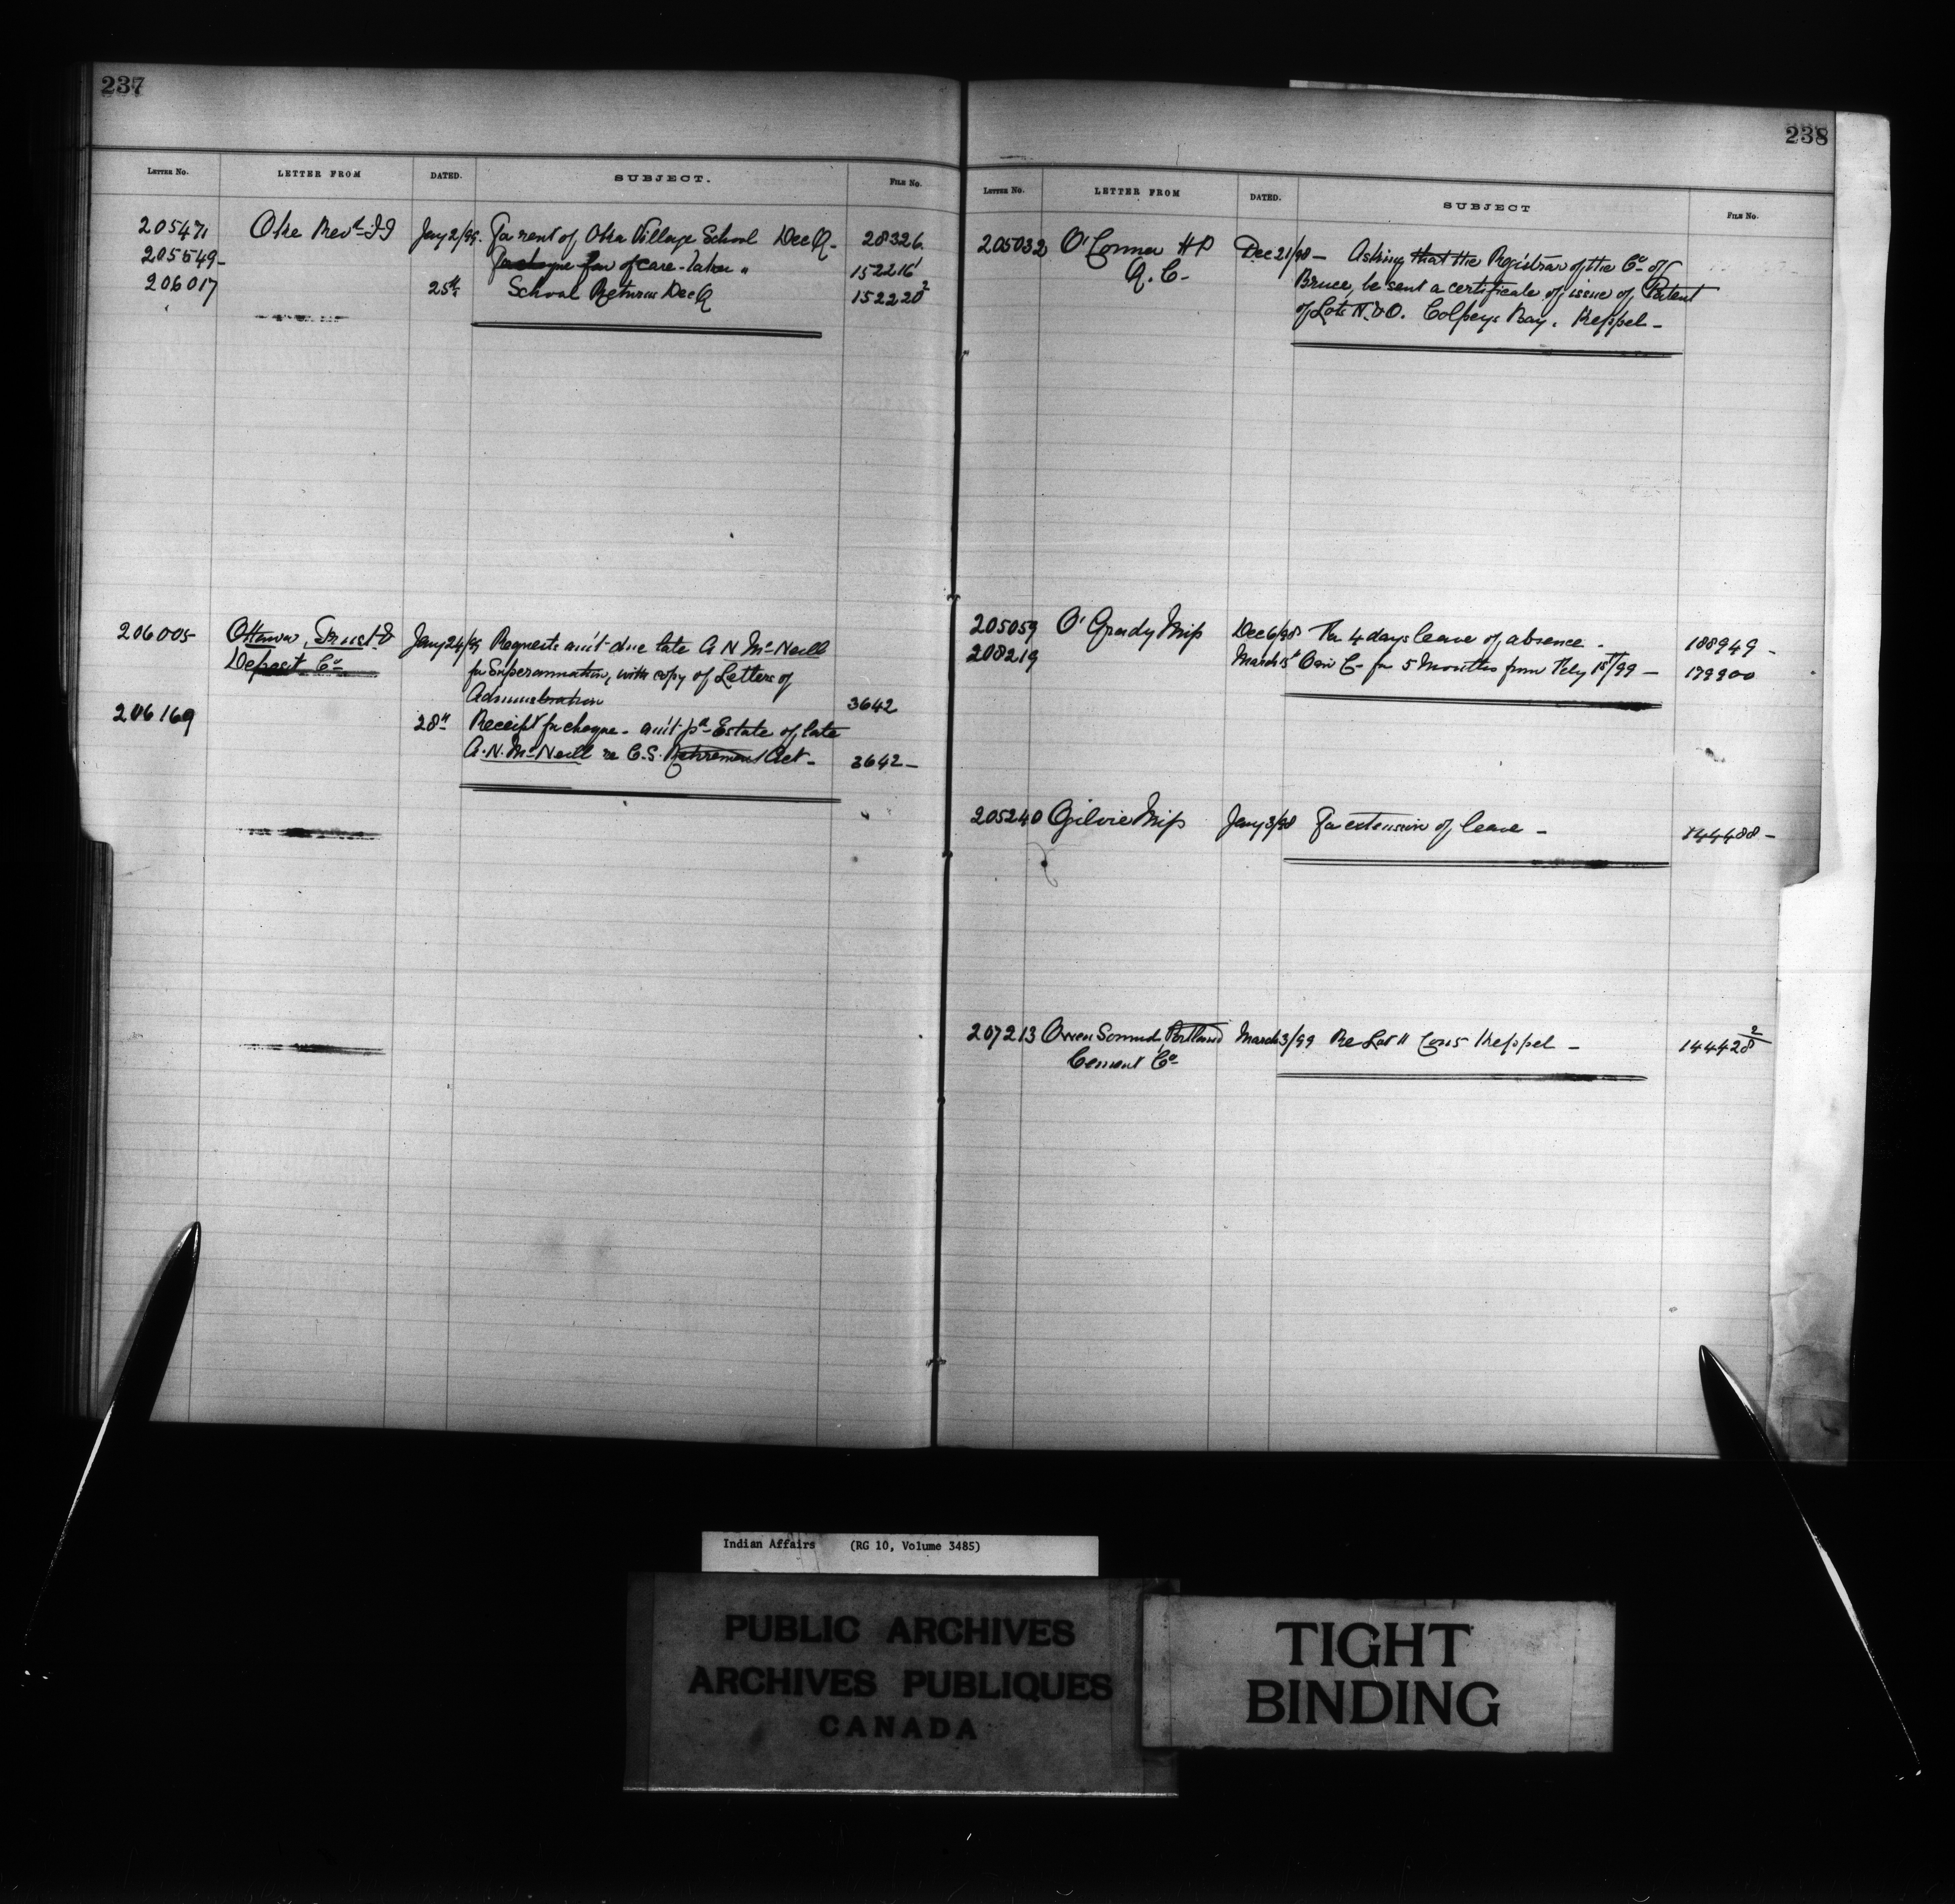 237
LETTER NO. LETTER FROM DATED. SUBJECT. FILE NO.
205471 Oke Revd J I Jany 2/99. For rent of Oka Village School Dec Q. 28326
205549 of care-taker " 152216¹
206017 25th School Returns Dec Q 152220²
206005 Ottawa, Trust & Jany 24/99 Requests am't due late A N McNeill
Deposit Co for Superannuation, with copy of Letters of
Administration 3642
206169 28" Receipt for cheque - am't pd Estate of late
A. N. McNeill re C. S. Retirement Act - 3642 -
238
LETTER NO. LETTER FROM DATED. SUBJECT FILE NO.
205032 O'Connor H P Dec 21/98 - Asking that the Registrar of the Co of
Q. C. - Bruce, be sent a certificate of issue of Patent
of Lots N. & O. Colpoys Bay. Keppel -
205059 O'Grady Miss Dec 6/98 For 4 days leave of absence - 188949 -
208219 March 15t C - for 5 Months from Feby 15t/99 - 179900
205240 Ogilvie Miss Jany 3/98 For extension of leave - 144488 -
207213 Owen Sound, Portland March 3/99 Re Lot 11 Con 5 Keppel - 144428²
Cement Co
Indian Affairs (RG 10, Volume 3485)
PUBLIC ARCHIVES
ARCHIVES PUBLIQUES
CANADA
TIGHT
BINDING